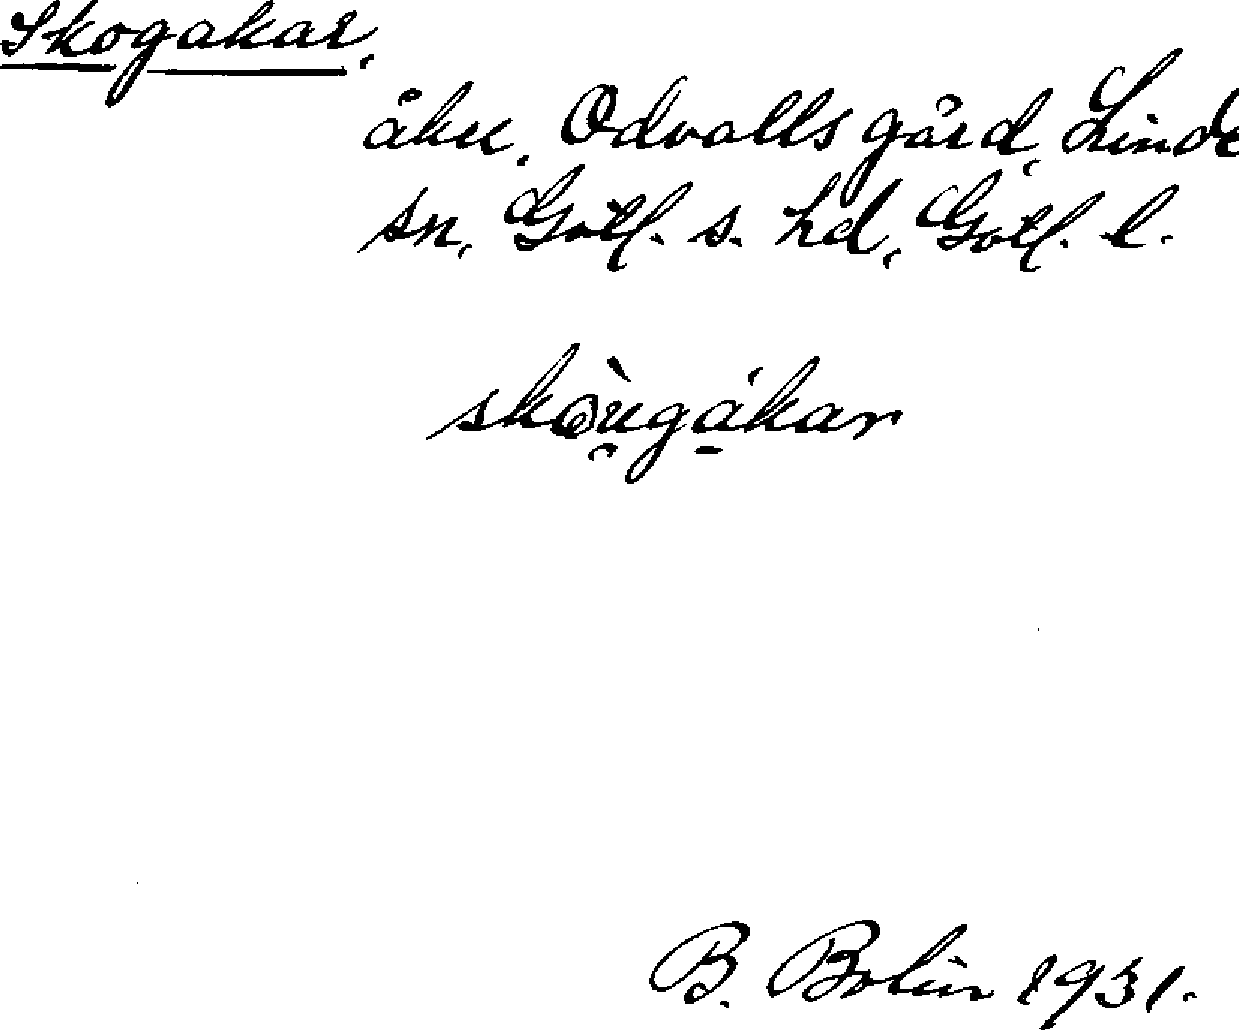 Skogakar,
åker, Odvalls gård, Linde
sn, Gotl. s. hd, Gotl. l.
skòu̯gá̱kar
B. Bolin 1931.